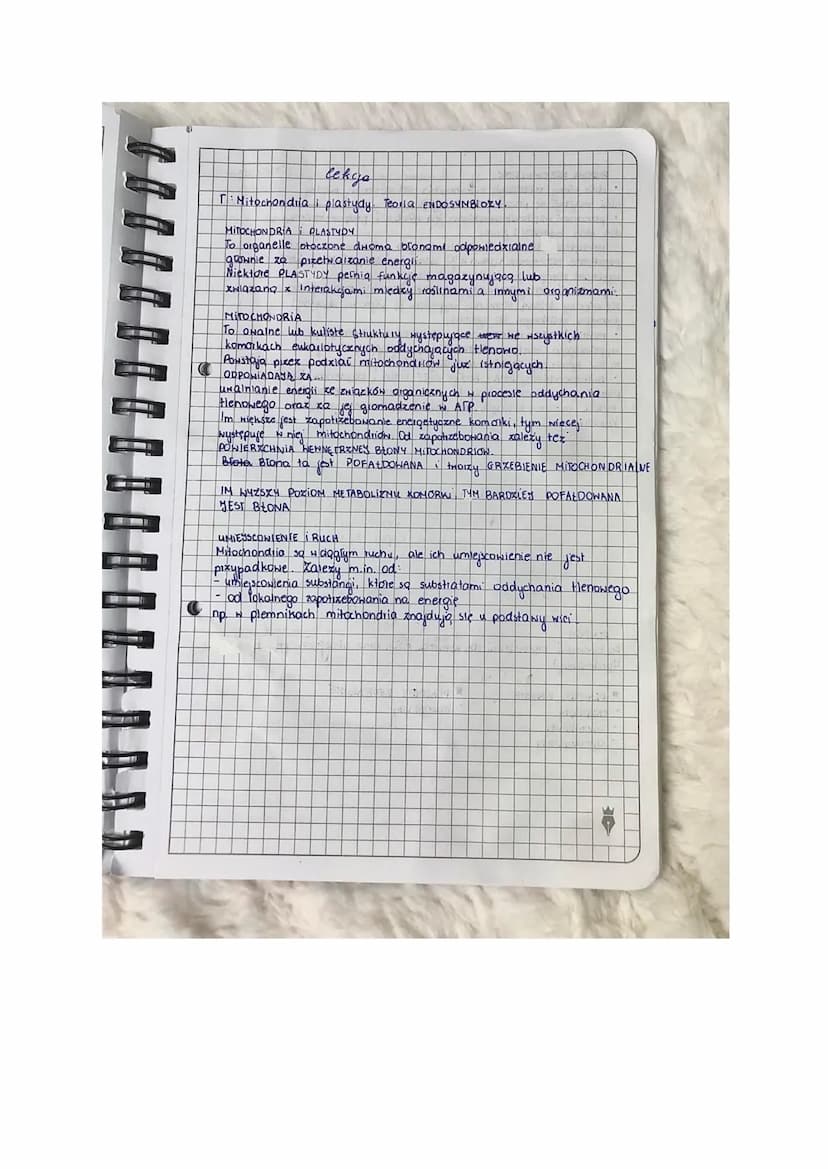 Lekcja
T: Mitochondria i plastydy. Teoria ENDOSYMBIOZY.
MITOCHONDRIA i PLASTYDY
To organelle otoczone dwoma błonami odpowiedzialne
głównie za przetwarzanie energii.
Niektóre PLASTYDY pełnią funkcję magazynującą lub
związaną z interakcjami między roślinami a innymi organizmami.
MITOCHONDRIA
To owalne lub kuliste struktury występujące we wszystkich
komórkach eukariotycznych oddychających tlenowo.
Powstają przez podział mitochondriów już istniejących.
ODPOWIADAJĄ ZA...
uwalnianie energii ze związków organicznych w procesie oddychania
tlenowego oraz za jej gromadzenie w ATP.
Im większe jest zapotrzebowanie energetyczne komórki, tym więcej
występuje w niej mitochondriów. Od zapotrzebowania zależy też
POWIERZCHNIA WEWNĘTRZNEJ BŁONY MITOCHONDRIÓW.
Błona ta jest POFAŁDOWANA i tworzy GRZEBIENIE MITOCHONDRIALNE
IM WYŻSZY POZIOM METABOLIZMU KOMÓRKI, TYM BARDZIEJ POFAŁDOWANA
JEST BŁONA
UMIEJSCOWIENIE i RUCH
Mitochondria są w ciągłym ruchu, ale ich umiejscowienie nie jest
przypadkowe. Zależy m.in. od:
- umiejscowienia substancji, które są substratami oddychania tlenowego
- od lokalnego zapotrzebowania na energię
np. w plemnikach mitochondria znajdują się u podstawy wici.